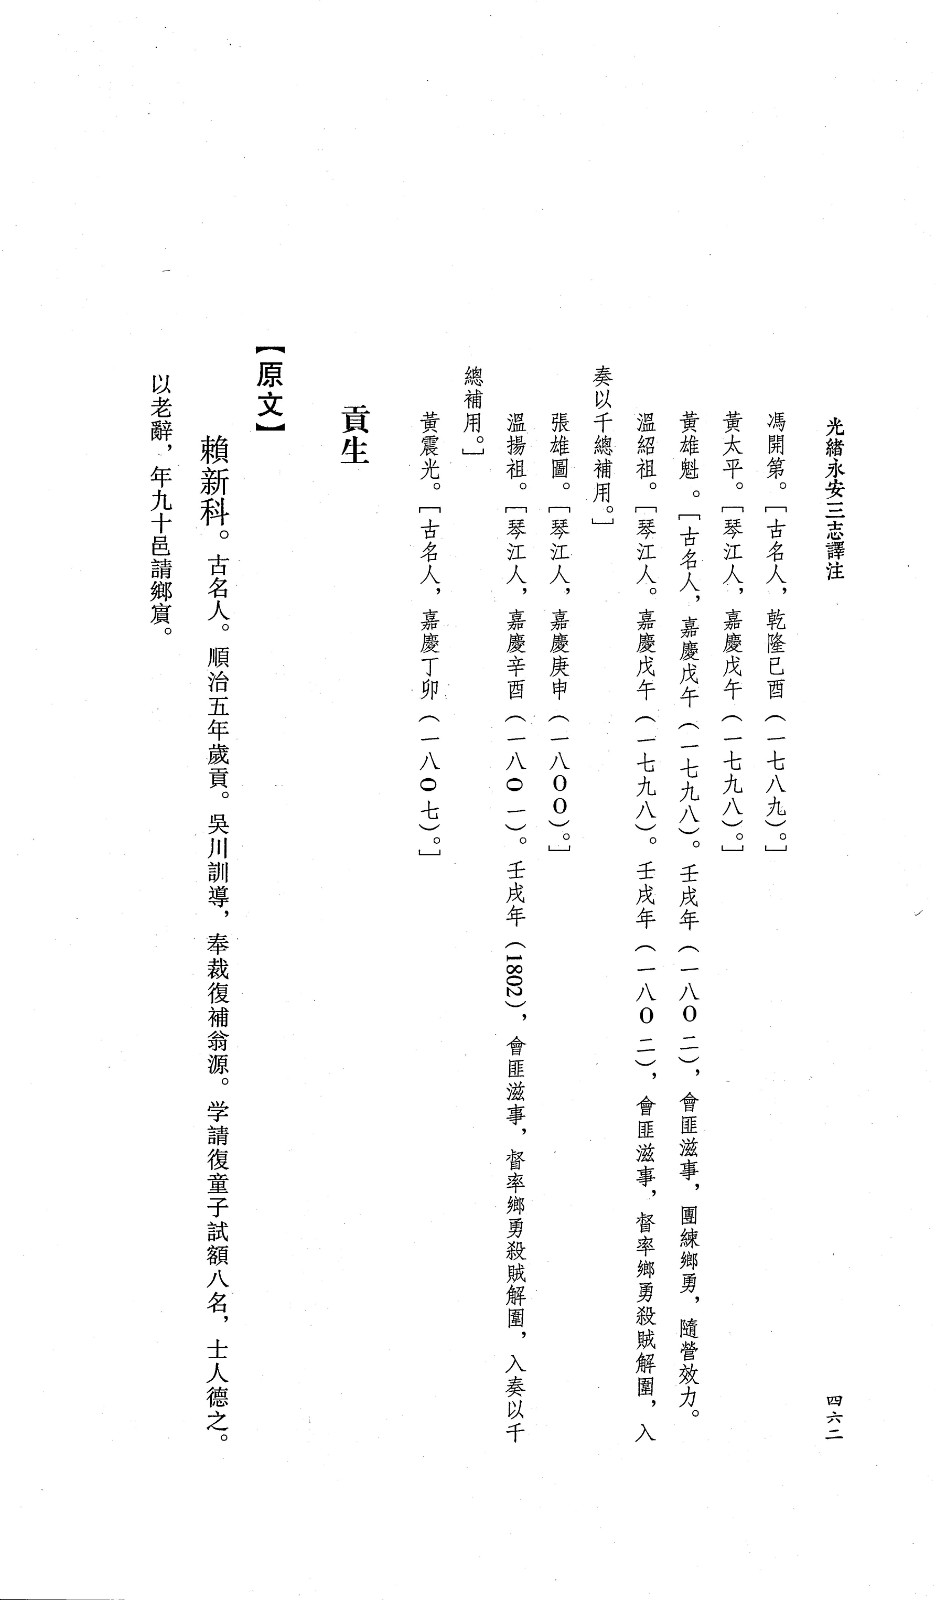 光緒永安三志譯注
四六二
馮開第。［古名人，乾隆已酉（一七八九）。］
黃太平。［琴江人，嘉慶戊午（一七九八）。］
黃雄魁。［古名人，嘉慶戊午（一七九八）。壬戌年（一八〇二），會匪滋事，團練鄉勇，隨營效力。
溫紹祖。［琴江人。嘉慶戊午（一七九八）。壬戌年（一八〇二），會匪滋事，督率鄉勇殺賊解圍，入
奏以千總補用。］
張雄圖。［琴江人，嘉慶庚申（一八〇〇）。］
溫揚祖。［琴江人，嘉慶辛酉（一八〇一）。壬戌年（1802），會匪滋事，督率鄉勇殺賊解圍，入奏以千
總補用。］
黃震光。［古名人，嘉慶丁卯（一八〇七）。］
貢生
【原文】
賴新科。古名人。順治五年歲貢。吳川訓導，奉裁復補翁源。学請復童子試額八名，士人德之。
以老辭，年九十邑請鄉賔。